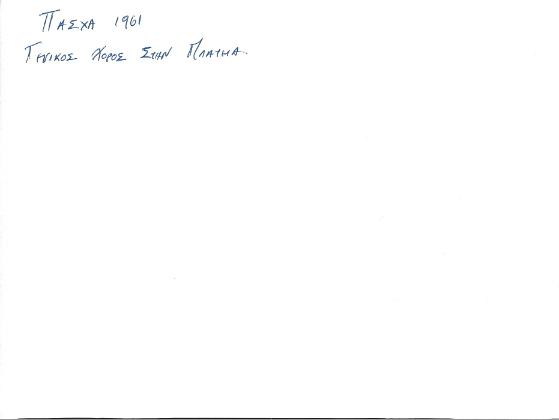 ΠΑΣΧΑ 1961
ΓΕΝΙΚΟΣ ΧΟΡΟΣ ΣΤΗΝ ΠΛΑΤΣΑ.